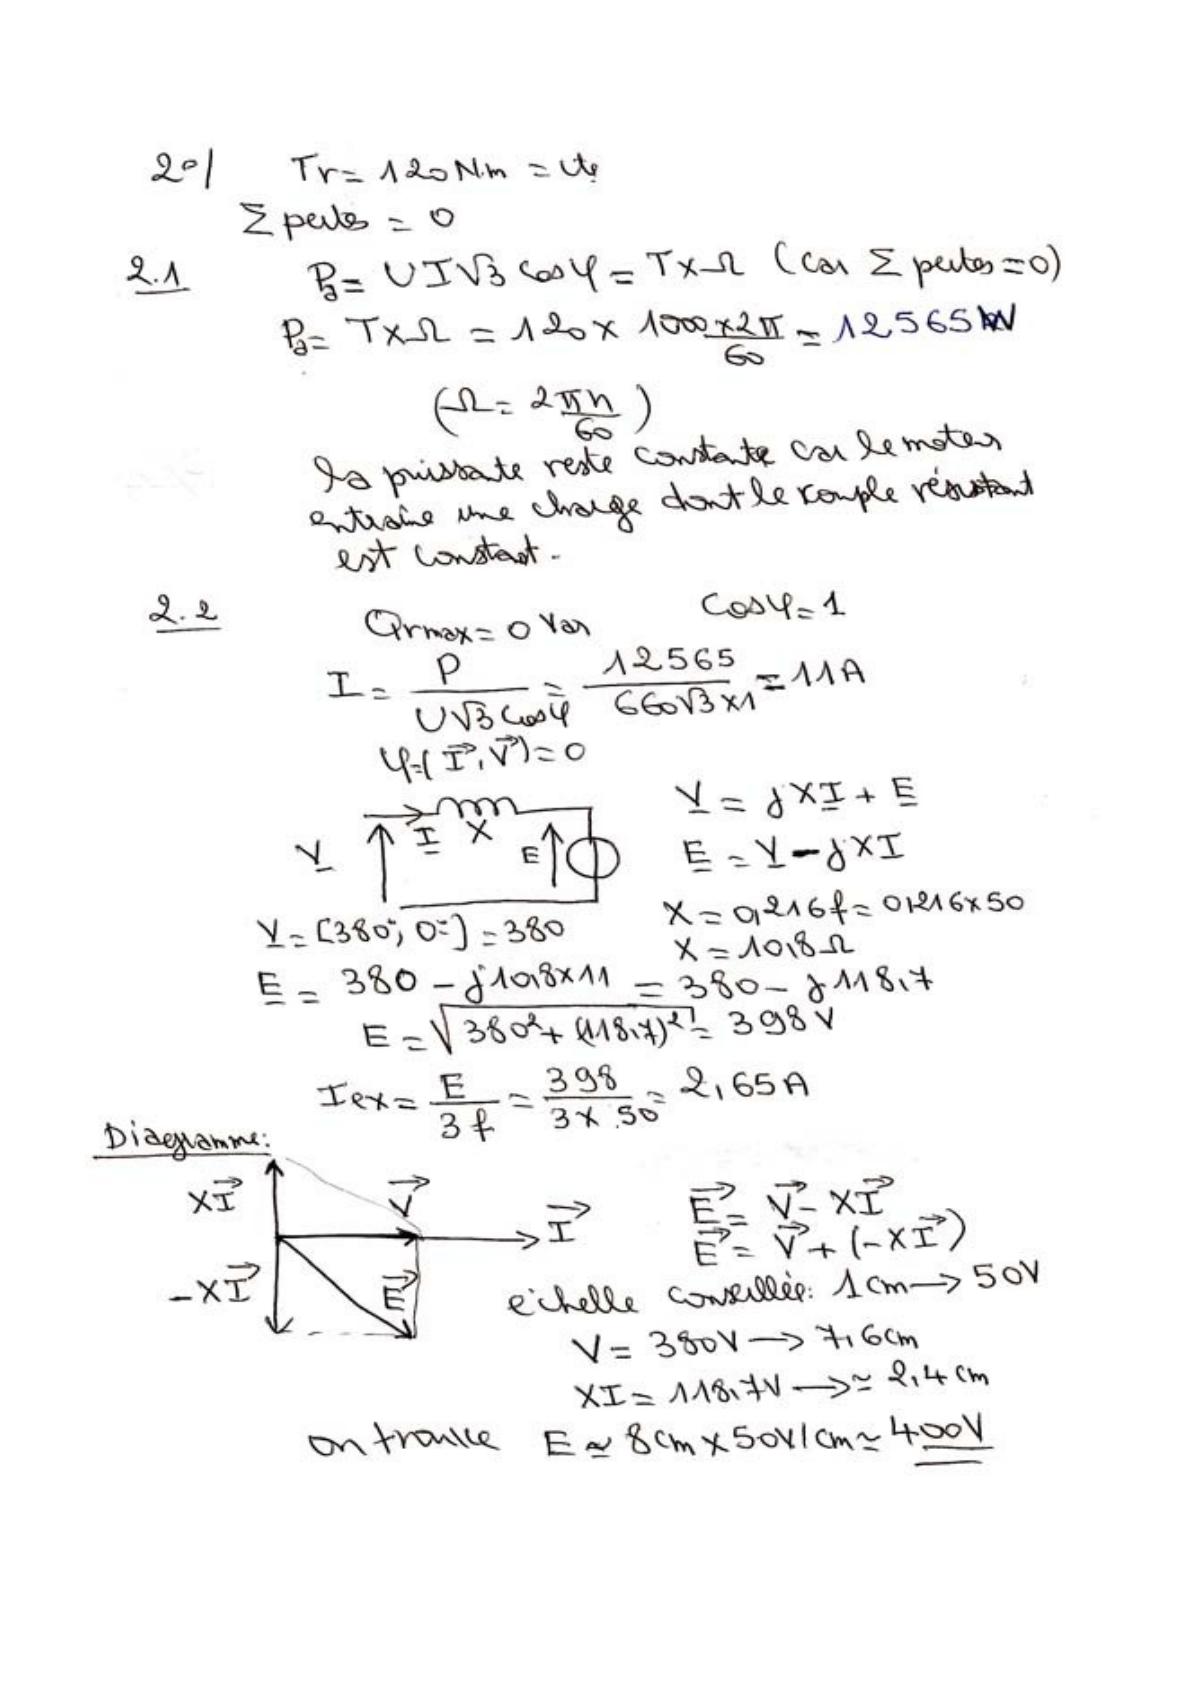 2°/ Tr = 120 N.m = cte
Σ pertes = 0
2.1 Pa = UI√3 cosφ = T x Ω (car Σ pertes = 0)
Pa = T x Ω = 120 x 1000 x 2π / 60 = 12565 W
(Ω = 2πn / 60)
la puissate reste constante car le moteur
entraîne une charge dont le couple résistant
est constant.
2.2 Qrmax = 0 Var cosφ = 1
I = P / U√3 cosφ = 12565 / 660√3 x 1 = 11A
φ = (I⃗, V⃗) = 0
V = jXI + E
V I X E
E = V - jXI
X = 0,216f = 0,216 x 50
V = [380; 0°] = 380
X = 10,8 Ω
E = 380 - j10,8 x 11 = 380 - j118,7
E = √380² + (118,7)² = 398 V
Iex = E / 3f = 398 / 3 x 50 = 2,65 A
Diagramme:
XI⃗ V⃗ I⃗
E⃗ = V⃗ - XI⃗
E⃗ = V⃗ + (-XI⃗)
-XI⃗ E⃗
échelle conseillée: 1 cm → 50V
V = 380V → 7,6cm
XI = 118,7V → ≃ 2,4 cm
on trouve E ≃ 8cm x 50V/cm ≃ 400V